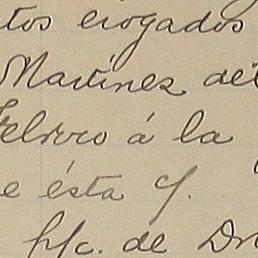 tos erogados
Martínez de
á la
e ésta C/.
p/c. de Dr